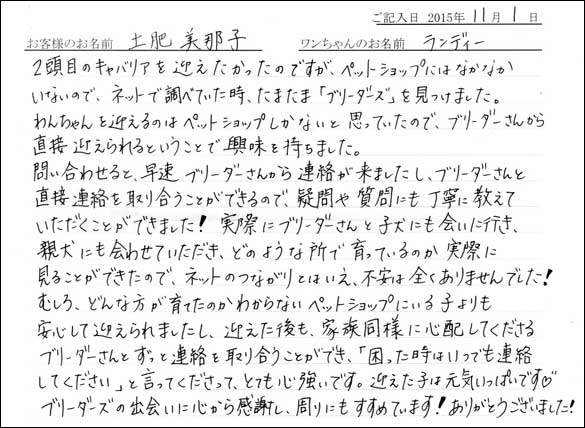 ご記入日 2015年 11月 1日
お客様のお名前 土肥 美那子 ワンちゃんのお名前 ランディー
2頭目のキャバリアを迎えたかったのですが、ペットショップにはなかなか
いないので、ネットで調べていた時、たまたま「ブリーダーズ」を見つけました。
わんちゃんを迎えるのはペットショップしかないと思っていたので、ブリーダーさんから
直接迎えられるということで興味を持ちました。
問い合わせると、早速ブリーダーさんから連絡が来ましたし、ブリーダーさんと
直接連絡を取り合うことができるので、疑問や質問にも丁寧に教えて
いただくことができました!実際にブリーダーさんと子犬にも会いに行き、
親犬にも会わせていただき、どのような所で育っているのか実際に
見ることができたので、ネットのつながりとはいえ、不安は全くありませんでした!
むしろ、どんな方が育てたのかわからないペットショップにいる子よりも
安心して迎えられましたし、迎えた後も、家族同様に心配してくださる
ブリーダーさんとずっと連絡を取り合うことができ、「困った時はいつでも連絡
してください」と言ってくださって、とても心強いです。迎えた子は元気いっぱいです♡
ブリーダーズの出会いに心から感謝し、周りにもすすめています!ありがとうございました!